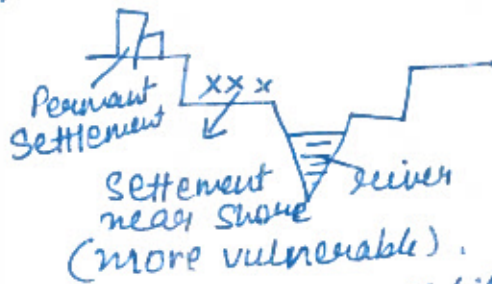 xxx
Permant
Settlement
Settement
near shore
(more vulnerable).
river